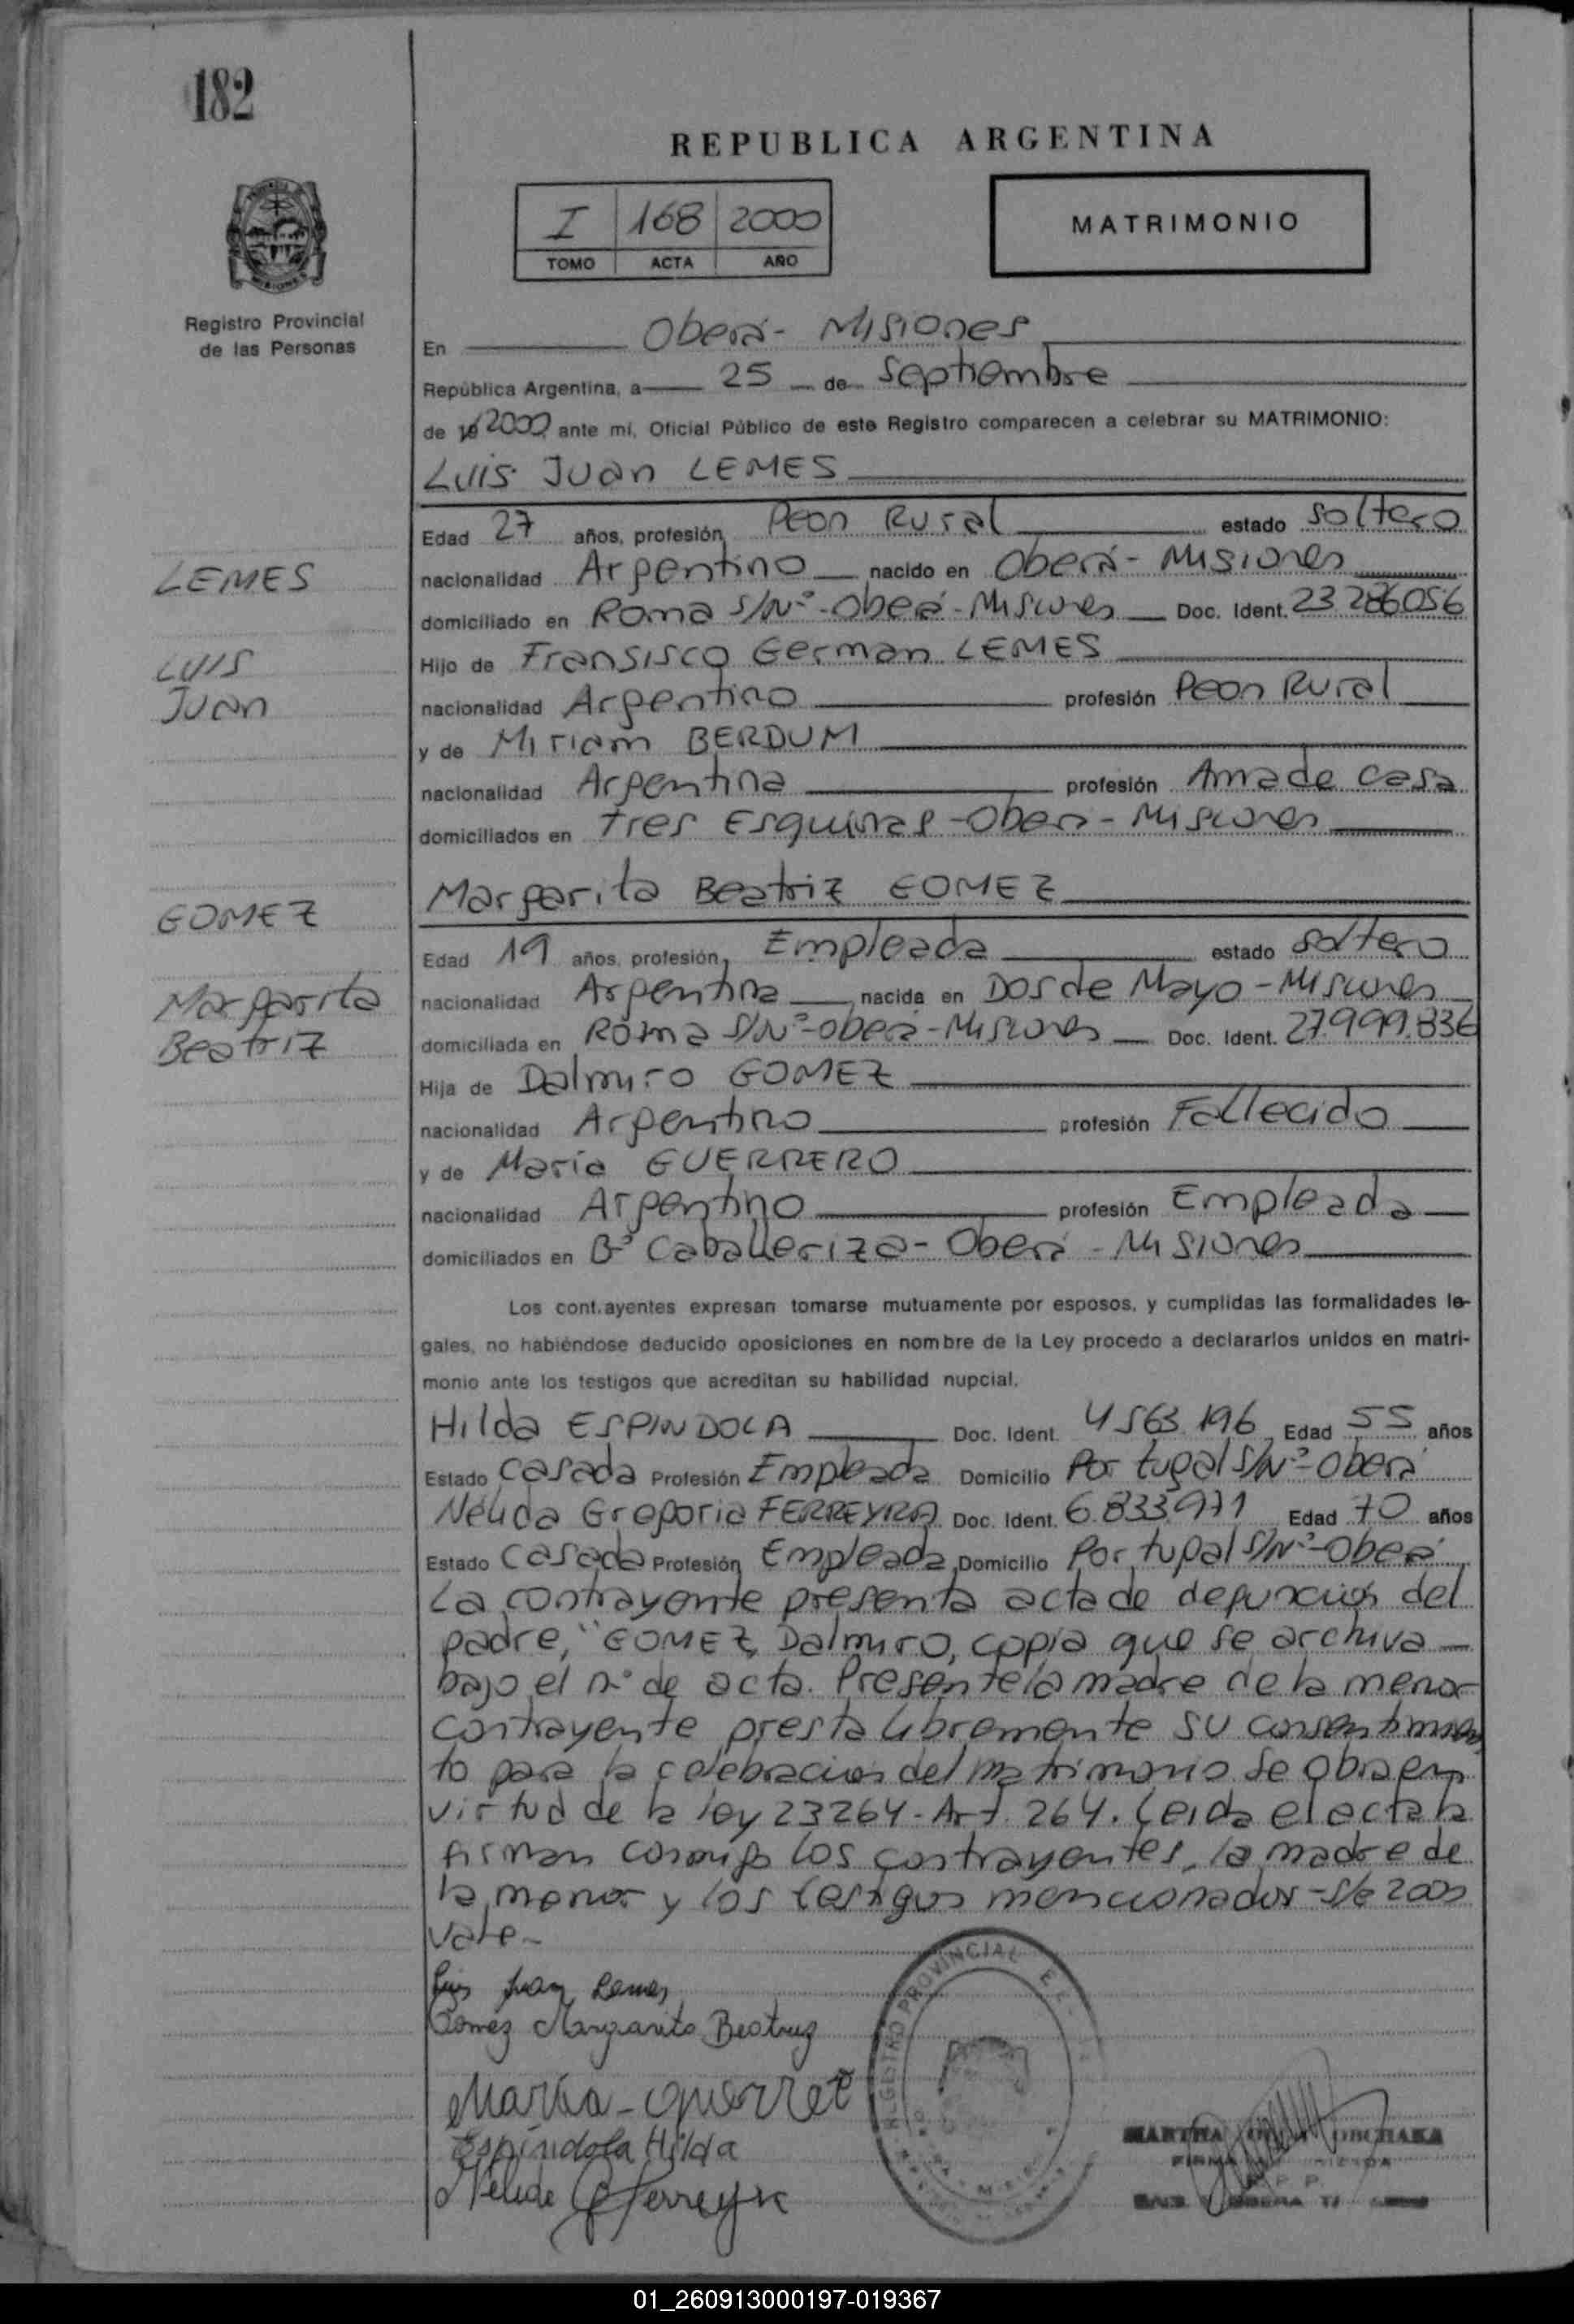 182
REPUBLICA ARGENTINA
I 168 2000
TOMO ACTA AÑO
MATRIMONIO
Registro Provincial
de las Personas
En Oberá - Misiones
República Argentina, a 25 de Septiembre
de 19 2000 ante mí, Oficial Público de este Registro comparecen a celebrar su MATRIMONIO:
Luis Juan LEMES
Edad 27 años, profesión Peon Rural estado soltero
LEMES
nacionalidad Argentino nacido en Oberá - Misiones
domiciliado en Roma S/Nº - Oberá - Misiones Doc. Ident. 23.286.056
LUIS
Hijo de Fransisco German LEMES
Juan
nacionalidad Argentino profesión Peon Rural
y de Miriam BERDUM
nacionalidad Argentina profesión Ama de Casa
domiciliados en tres Esquinas - Oberá - Misiones
Margarita Beatriz GOMEZ
GOMEZ
Edad 19 años, profesión Empleada estado soltero
Margarita
nacionalidad Argentina nacida en Dos de Mayo - Misiones
Beatriz
domiciliada en Roma S/Nº - Oberá - Misiones Doc. Ident. 27.999.836
Hija de Dalmiro GOMEZ
nacionalidad Argentino profesión Fallecido
y de María GUERRERO
nacionalidad Argentino profesión Empleada
domiciliados en Bº Caballeriza - Oberá - Misiones
Los cont.ayentes expresan tomarse mutuamente por esposos, y cumplidas las formalidades le-
gales, no habiéndose deducido oposiciones en nombre de la Ley procedo a declararlos unidos en matri-
monio ante los testigos que acreditan su habilidad nupcial.
Hilda ESPINDOLA Doc. Ident. 4563.196 Edad 55 años
Estado Casada Profesión Empleada Domicilio Portugal S/Nº - Oberá
Nélida Gregoria FERREYRA Doc. Ident. 6.833.971 Edad 70 años
Estado Casada Profesión Empleada Domicilio Portugal S/Nº - Oberá
La contrayente presenta acta de defuncion del
padre, "GOMEZ, Dalmiro, copia que se archiva
bajo el nº de acta. Presente la madre de la menor
contrayente presta libremente su consentimien
to para la celebracion del matrimonio. Se obra en
virtud de la ley 23264 - Art. 264. Leida el acta la
firman conmigo los contrayentes, la madre de
la menor y los testigos mencionados - S/e 2000
Vale -
Luis Juan Lemes
Gomez Margarita Beatriz
REGISTRO PROVINCIAL
María - Guerrero
Espíndola Hilda
MARTHA
Nelida G Ferreyra
01_260913000197-019367